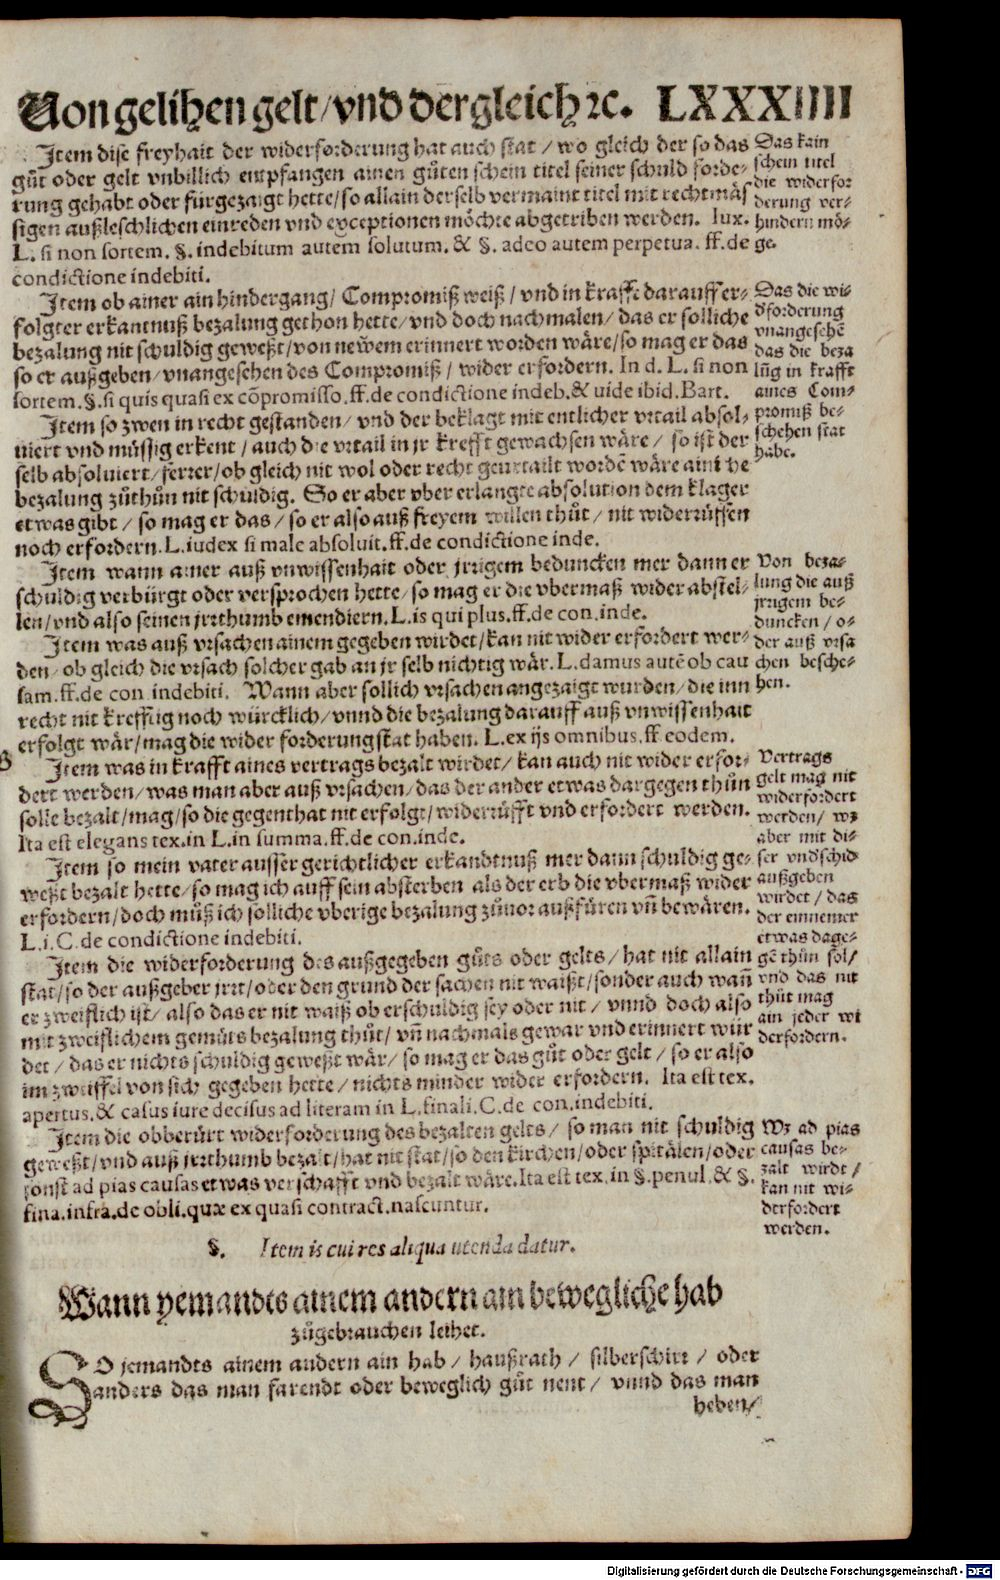 Von gelihen gelt/vnd dergleich ꝛc. LXXXIIII
Item dise freyhait der widerforderung hat auch stat / wo gleich der so das
gůt oder gelt vnbillich empfangen ainen gůten schein titel seiner schuld forde-
rung gehabt oder fürgezaigt hette/so allain derselb vermaint titel mit rechtmäs
sigen außleschlichen einreden vnd exceptionen möchte abgetriben werden. Iux.
L. si non sortem. §. indebitum autem solutum. & §. adeo autem perpetua. ff. de
condictione indebiti.
Das kain
schein titel
die widerfor
derung ver-
hindern mö-
ge.
Item ob ainer ain hindergang/ Compromiß weiß / vnd in krafft darauff er-
folgter erkantnuß bezalung gethon hette/vnd doch nachmalen/das er solliche
bezalung nit schuldig geweßt/von newem erinnert worden wäre/so mag er das
so er außgeben/vnangesehen des Compromiß/ wider erfordern. In d. L. si non
sortem.§.si quis quasi ex cõpromisso.ff.de condictione indeb.& uide ibid. Bart.
Das die wi-
dforderung
vnangesehẽ
das die beza
lũg in krafft
aines Com-
promiß be-
schehen stat
habe.
Item so zwen in recht gestanden/ vnd der beklagt mit entlicher vrtail absol-
uiert vnd müssig erkent / auch die vrtail in jr krefft gewachsen wäre / so ist der
selb absoluiert/ferrer/ob gleich nit wol oder recht geurtailt wordẽ wäre
bezalung zůthůn nit schuldig. So er aber vber erlangte absolution dem klager
etwas gibt / so mag er das / so er also auß freyem willen thůt / nit widerrüffen
noch erfordern. L.iudex si male absoluit.ff.de condictione inde.
Item wann ainer auß vnwissenhait oder jrrigem beduncken mer dann er
schuldig verbürgt oder versprochen hette/so mag er die vbermaß wider abstel-
len/vnd also seinen jrrthumb emendiern. L.is qui plus.ff.de con.inde.
Von beza-
lung die auß
jrrigem be-
duncken / o-
der auß vrsa
chen besche-
hen.
Item was auß vrsachen ainem gegeben wirdet/kan nit wider erfordert wer-
den/ob gleich die vrsach solcher gab an jr selb nichtig wär. L.damus autẽ ob cau
sam.ff.de con. indebiti. Wann aber sollich vrsachen angezaigt wurden/die inn
recht nit krefftig noch würcklich/vnnd die bezalung darauff auß vnwissenhait
erfolgt wär/mag die wider forderung stat haben. L.ex ijs omnibus.ff eodem.
Item was in krafft aines vertrags bezalt wirdet/ kan auch nit wider erfor-
dert werden/was man aber auß vrsachen/das der ander etwas dargegen thůn
solle bezalt/mag/so die gegenthat nit erfolgt/widerrüfft vnd erfordert werden.
Ita est elegans tex.in L.in summa.ff.de con.inde.
Vertrags
gelt mag nit
widerfordert
werden/ wz
aber mit di-
ser vndschid
außgeben
wirdet / das
der einnemer
etwas dage-
gẽ thůn sol/
vnd das nit
thůt mag
ain jeder wi
derfordern.
Item so mein vater ausser gerichtlicher erkandtnuß mer dann schuldig ge-
weßt bezalt hette/so mag ich auff sein absterben als der erb die vbermaß wider
erfordern/doch můß ich solliche vberige bezalung zůuor außfüren vñ bewären.
L.i.C.de condictione indebiti.
Item die widerforderung des außgegeben gůts oder gelts/ hat nit allain
stat/so der außgeber jrrt/oder den grund der sachen nit waißt/sonder auch wañ
er zweiflich ist/ also das er nit waiß ob er schuldig sey oder nit / vnnd doch also
mit zweiflichem gemůts bezalung thůt/ vñ nachmals gewar vnd erinnert wür
det / das er nichts schuldig geweßt wär/ so mag er das gůt oder gelt / so er also
im zweiffel von sich gegeben hette / nichts minder wider erfordern. Ita est tex.
apertus.& casus iure decisus ad literam in L.finali.C.de con.indebiti.
Item die obberürt widerforderung des bezalten gelts/ so man nit schuldig
geweßt/vnd auß jrrthumb bezalt/hat nit stat/so den kirchen/oder spitälen/oder
sonst ad pias causas etwas verschafft vnd bezalt wäre. Ita est tex.in §.penul.& §.
fina.infra.de obli.quæ ex quasi contract.nascuntur.
Wz ad pias
causas be-
zalt wirdt /
kan nit wi-
derfordert
werden.
§. Item is cui res aliqua utenda datur.
Wann yemandts ainem andern ain bewegliche hab
zůgebrauchen leihet.
SO jemandts ainem andern ain hab / haußrath / silberschirr / oder
anders das man farendt oder beweglich gůt nent/ vnnd das man
heben/
Digitalisierung gefördert durch die Deutsche Forschungsgemeinschaft - DFG